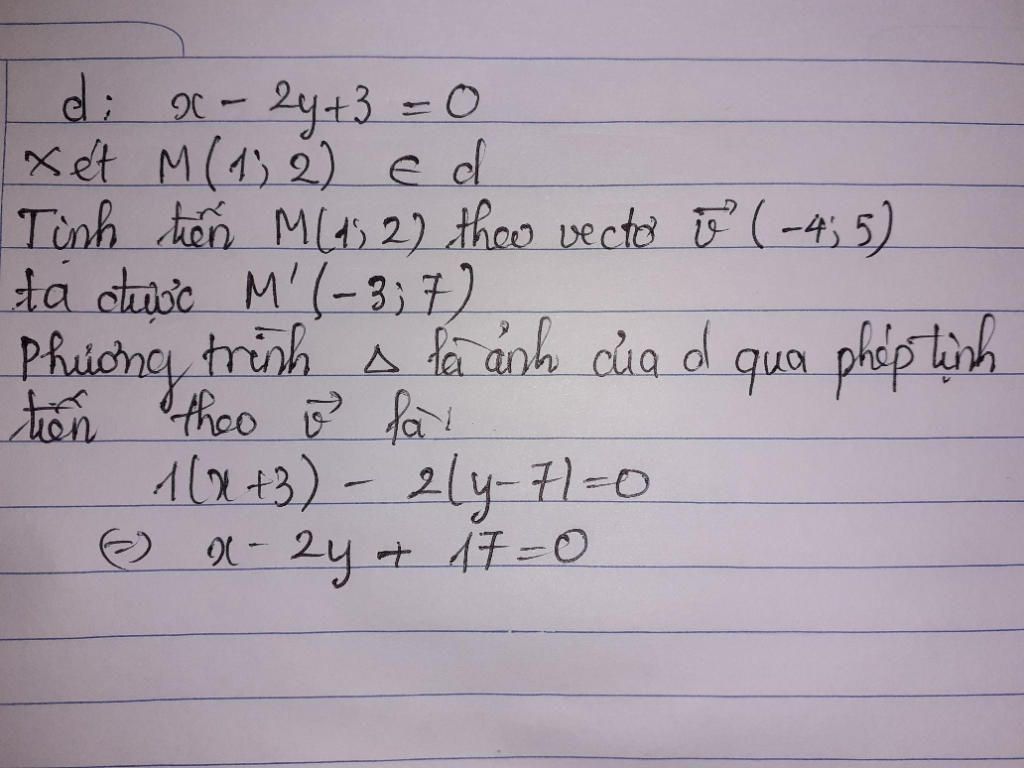 d: x - 2y + 3 = 0
Xét M(1; 2) ∈ d
Tịnh tiến M(1; 2) theo vectơ v⃗ (-4; 5)
ta được M'(-3; 7)
Phương trình Δ là ảnh của d qua phép tịnh
tiến theo v⃗ là:
1(x+3) - 2(y-7)=0
⇔ x - 2y + 17 = 0